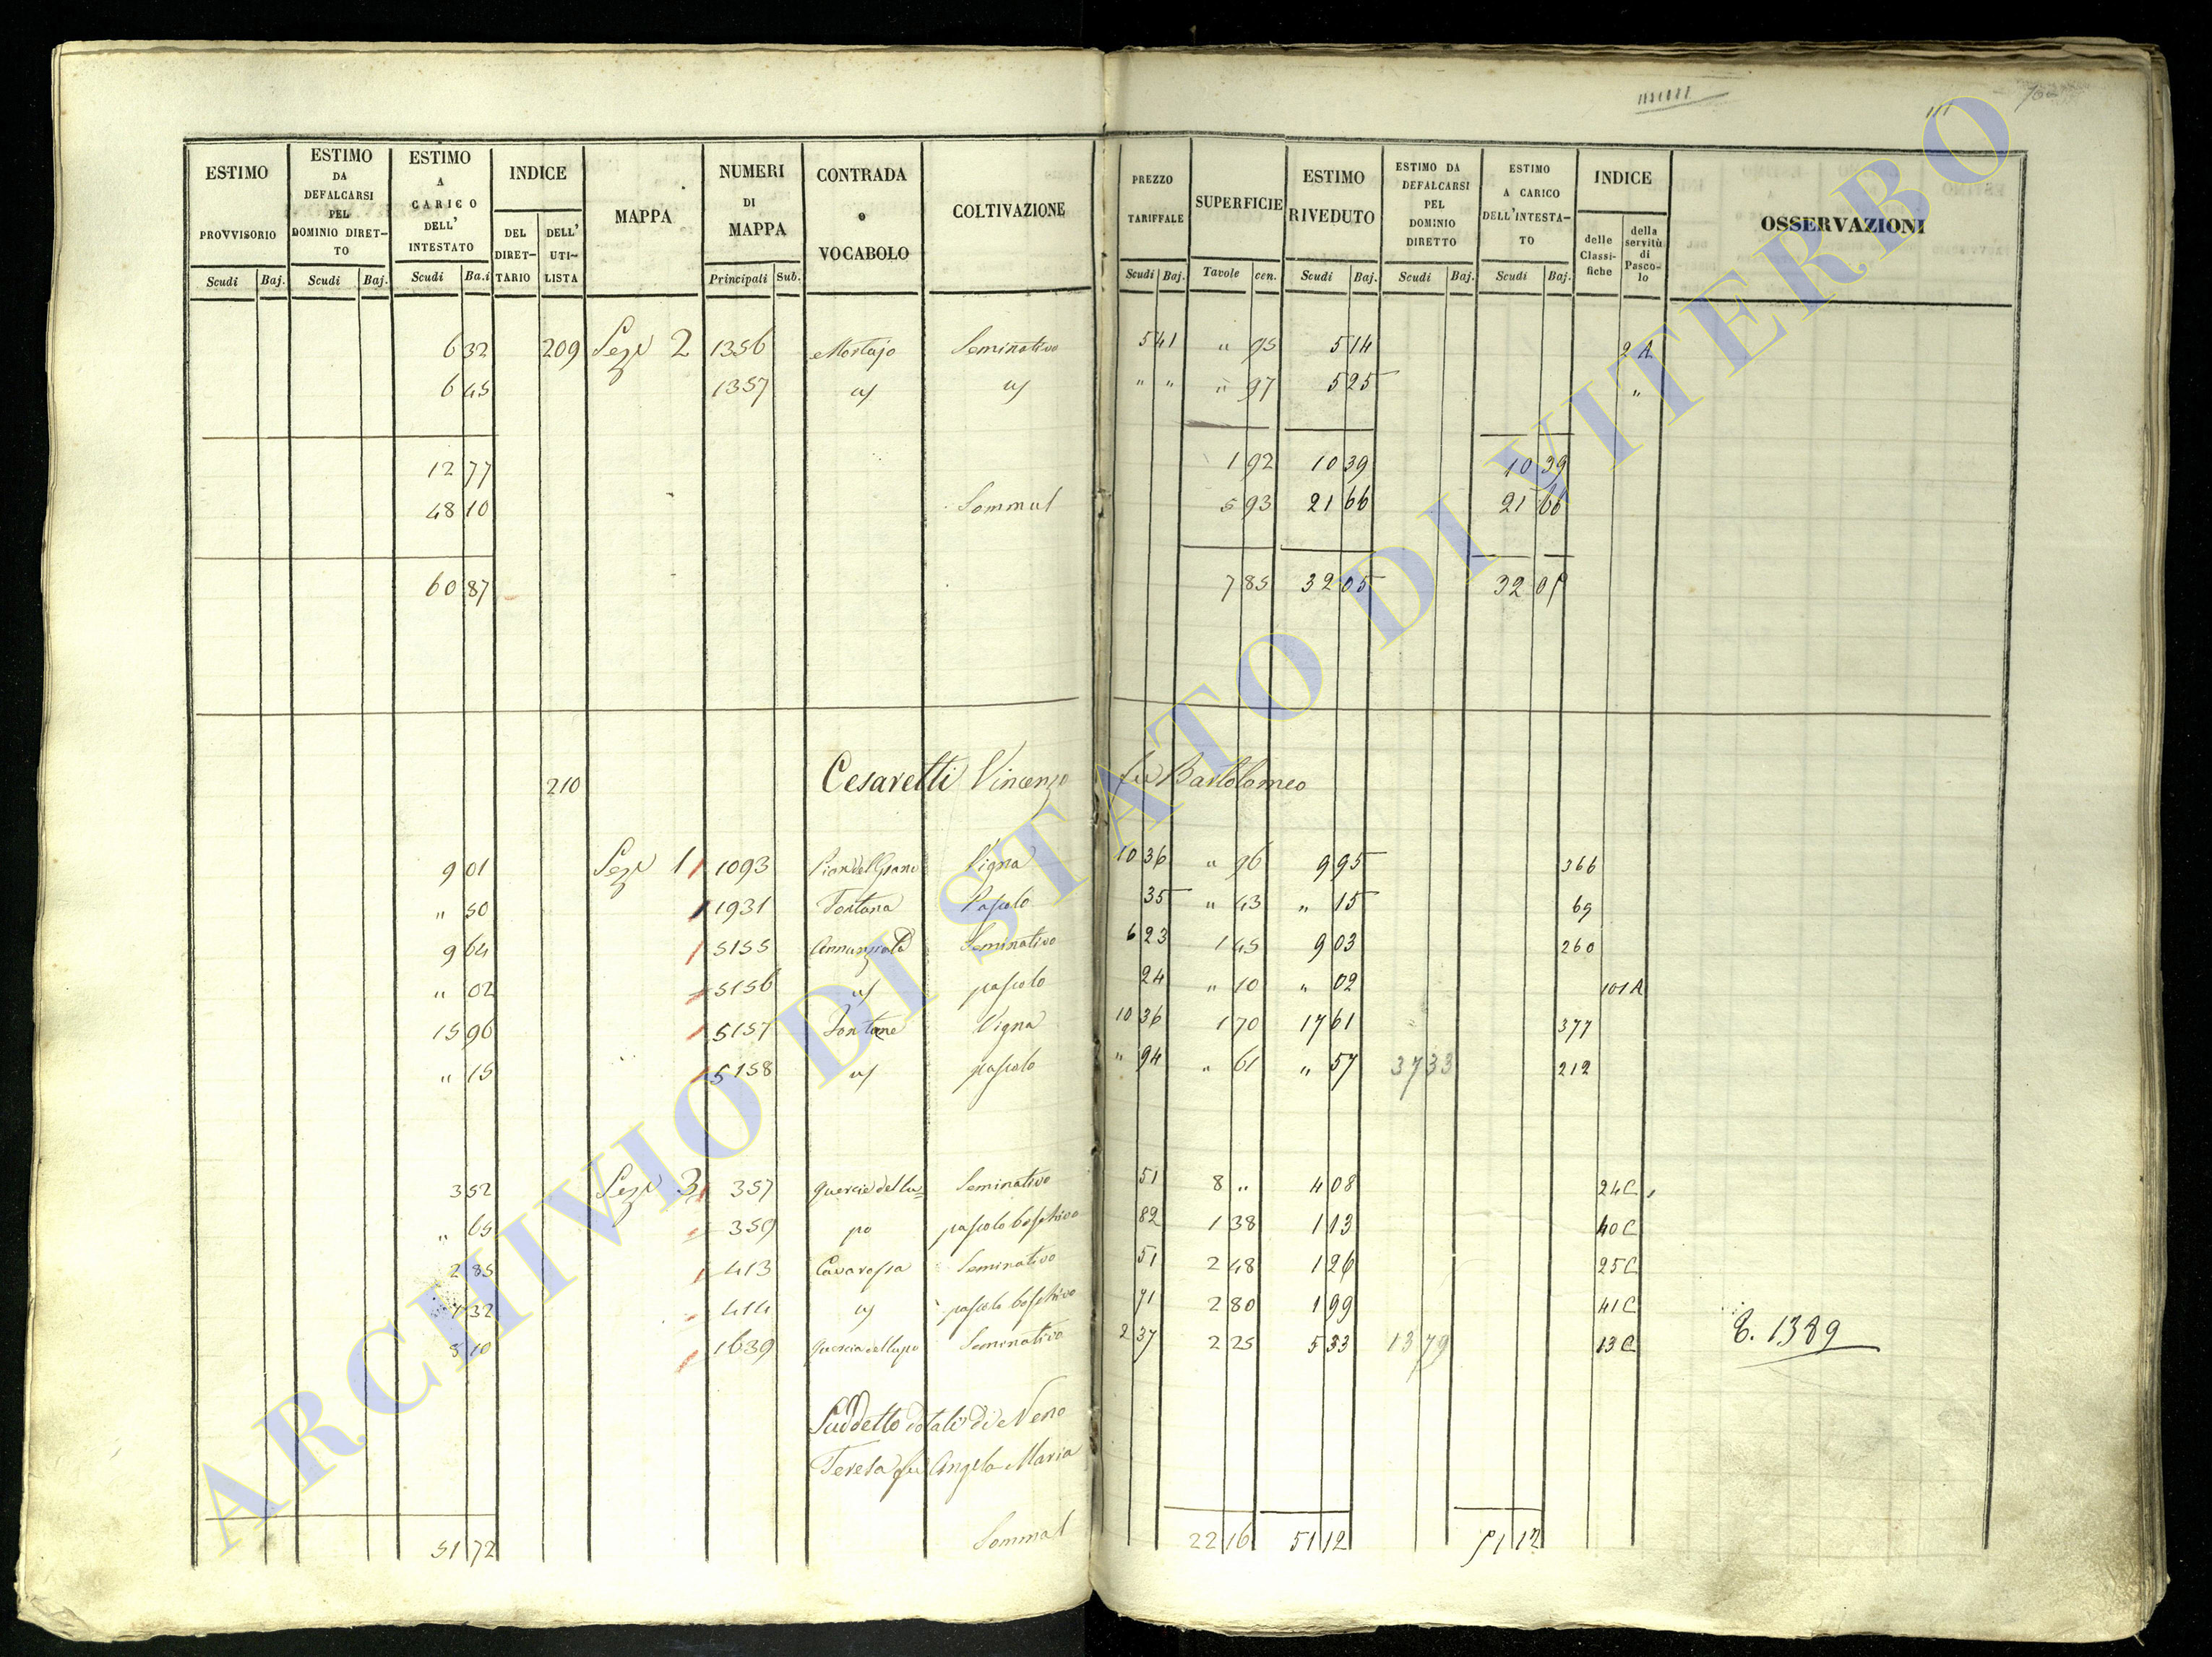 111
ESTIMO PROVVISORIO Scudi Baj.
ESTIMO DA DEFALCARSI PEL DOMINIO DIRET–TO Scudi Baj.
ESTIMO A CARICO DELL' INTESTATO Scudi Ba.i
INDICE DEL DIRET–TARIO DELL' UTI–LISTA
MAPPA
NUMERI DI MAPPA Principali Sub.
CONTRADA o VOCABOLO
COLTIVAZIONE
PREZZO TARIFFALE Scudi Baj.
SUPERFICIE Tavole cen.
ESTIMO RIVEDUTO Scudi Baj.
ESTIMO DA DEFALCARSI PEL DOMINIO DIRETTO Scudi Baj.
ESTIMO A CARICO DELL'INTESTA–TO Scudi Baj.
INDICE delle Classi-fiche della servitù di Pasco-lo
OSSERVAZIONI
6 32 209 Sez. 2 1356 Mortajo Seminativo 5 41 " 95 5 14 2 A
6 45 1357 " 97 5 25 "
12 77 1 92 10 39 10 39
48 10 Sommal 5 93 21 66 21 66
60 87 7 85 32 05 32 05
210 Cesaretti Vincenzo fu Bartolomeo
9 01 Sez. 1 1093 Pian del Grano Vigna 10 36 " 96 9 95 366
" 50 1931 Fontana Pascolo 35 " 43 " 15 69
9 64 5155 Annunziata Seminativo 6 23 1 45 9 03 260
" 02 5156 pascolo 24 " 10 " 02 101 A
15 96 5157 Fontane Vigna 10 36 1 70 17 61 377
" 15 5158 pascolo " 94 " 61 " 57 37 33 212
3 52 Sez. 3 357 Quercie del Lu= Seminativo 51 8 " 4 08 24 C
" 65 359 po pascolo boschivo 82 1 38 1 13 40 C
2 85 413 Cavarossa Seminativo 51 2 48 1 26 25 C
1 32 414 pascolo boschivo 71 2 80 1 99 41 C
8 10 1639 Quercia del Lupo Seminativo 2 37 2 25 5 33 13 79 13 C
1389
Suddetto dotali di Neno
Teresa fu Angelo Maria
51 72 Sommal 22 16 51 12 51 12
ARCHIVIO DI STATO DI VITERBO